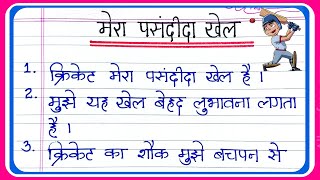 मेरा पसंदीदा खेल
1. क्रिकेट मेरा पसंदीदा खेल है ।
2. मुझे यह खेल बेहद लुभावना लगता
है ।
3. क्रिकेट का शौक मुझे बचपन से